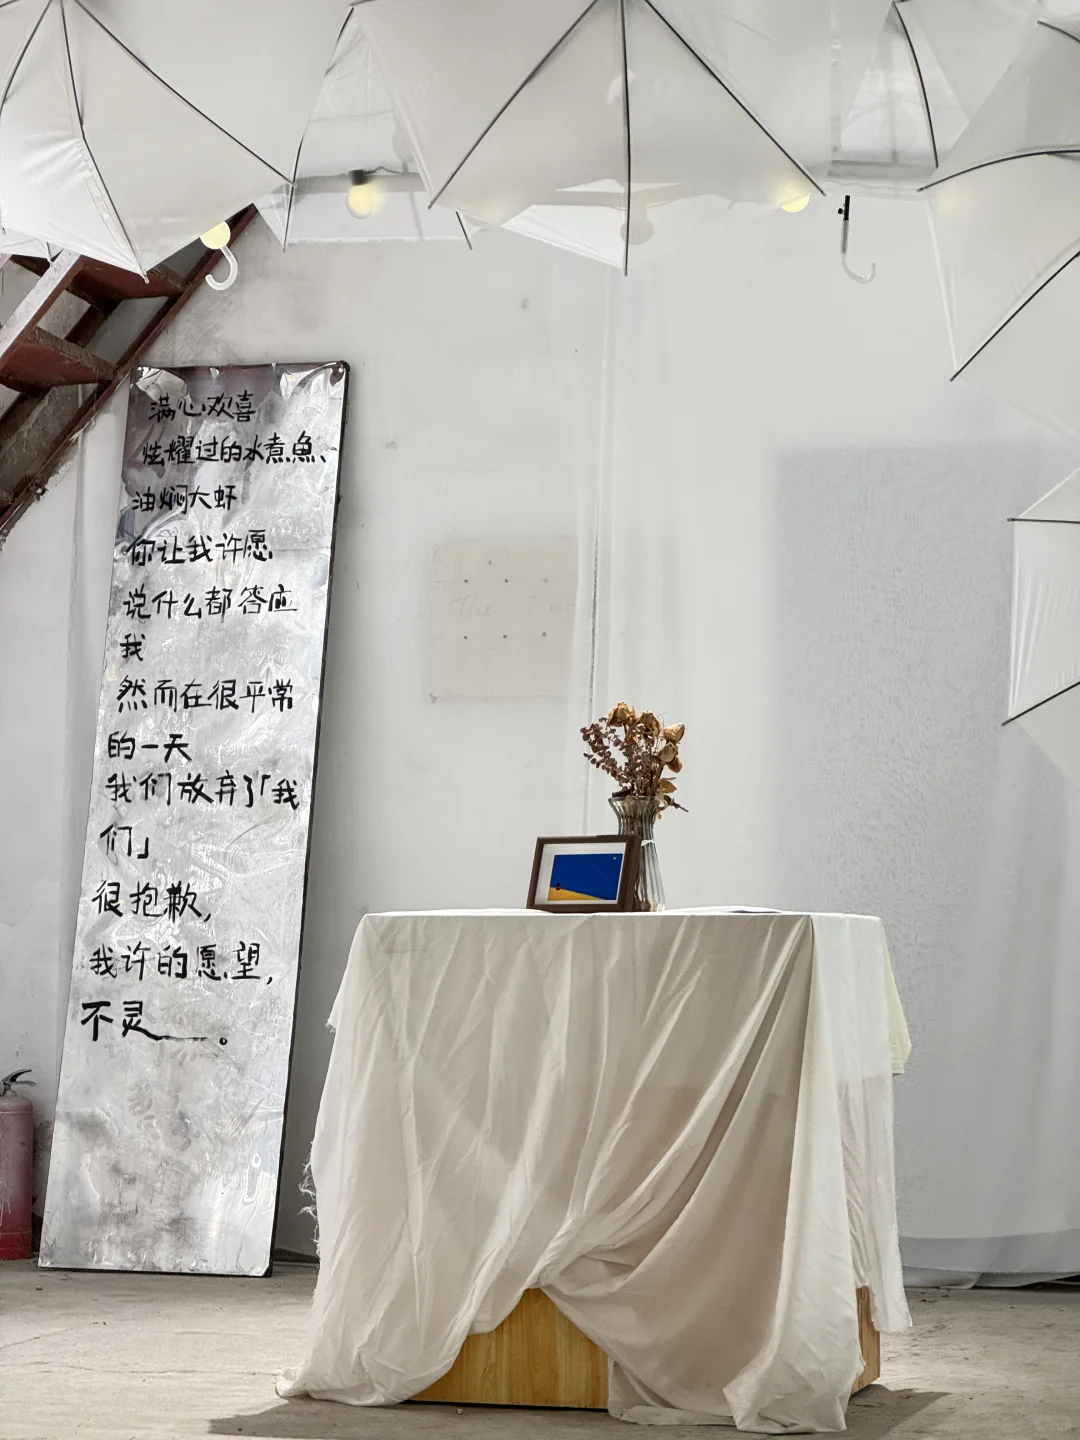 满心欢喜
炫耀过的水煮魚、
油焖大虾
你让我许愿
说什么都答应
我
然而在很平常
的一天
我们放弃了「我
们」
很抱歉,
我许的愿望,
不灵——。
The